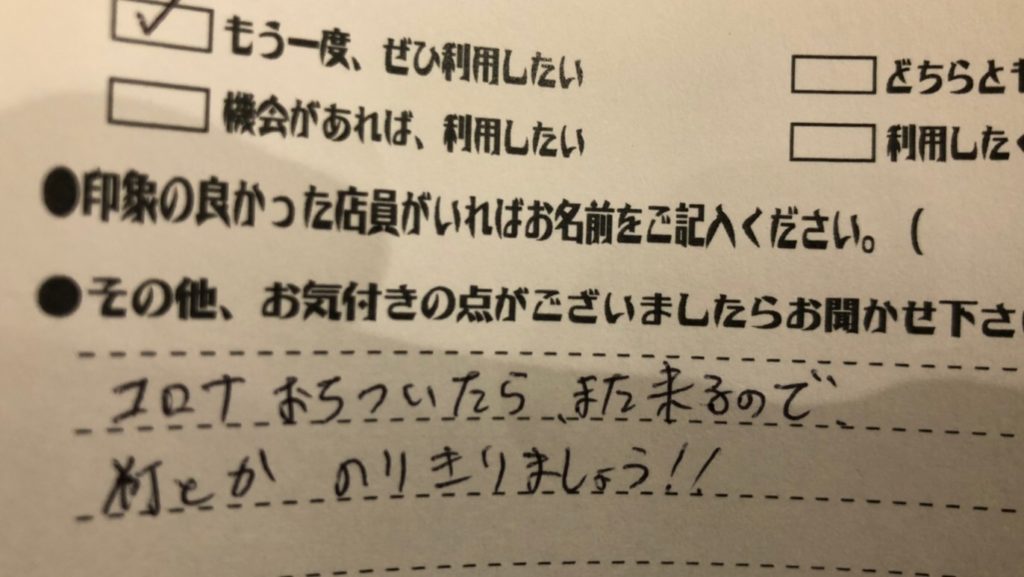 もう一度、ぜひ利用したい
どちらとも
機会があれば、利用したい
利用したく
●印象の良かった店員がいればお名前をご記入ください。(
●その他、お気付きの点がございましたらお聞かせ下さい
コロナ おちついたら、また来るので、
何とか のりきりましょう!!